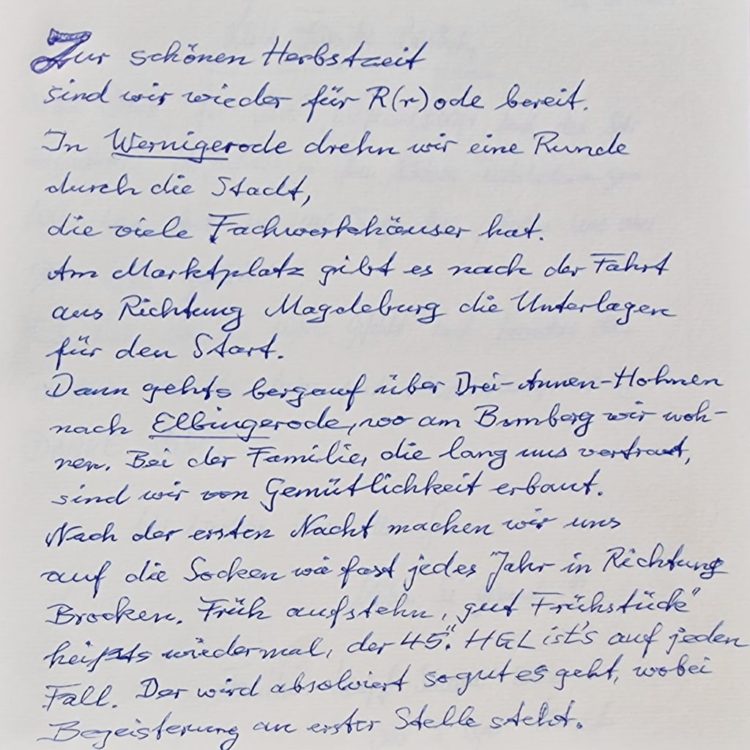 Zur schönen Herbstzeit
sind wir wieder für R(r)ode bereit.
In Wernigerode drehn wir eine Runde
durch die Stadt,
die viele Fachwerkhäuser hat.
Am Marktplatz gibt es nach der Fahrt
aus Richtung Magdeburg die Unterlagen
für den Start.
Dann gehts bergauf über Drei-Annen-Hohnen
nach Elbingerode, wo am Bomberg wir woh-
nen. Bei der Familie, die lang uns vertraut,
sind wir von Gemütlichkeit erbaut.
Nach der ersten Nacht machen wir uns
auf die Socken wie fast jedes Jahr in Richtung
Brocken. Früh aufstehn, "gut Frühstück"
heißts wiedermal, der 45. HGL ist's auf jeden
Fall. Der wird absolviert so gut es geht, wobei
Begeisterung an erster Stelle steht.